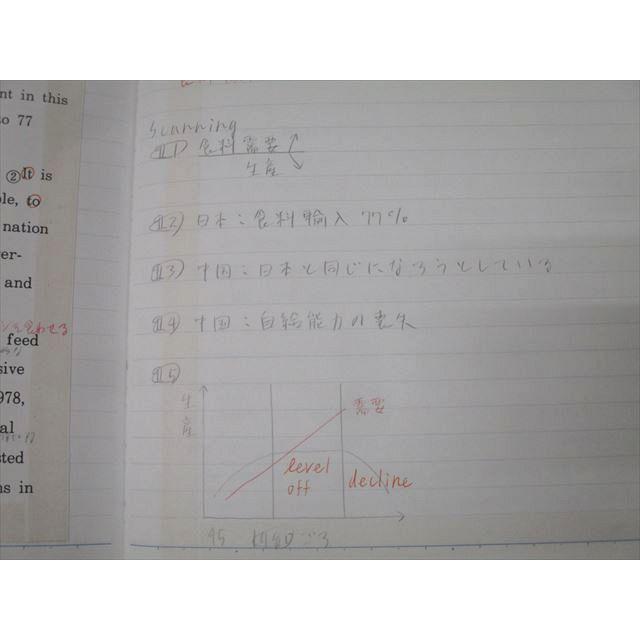 nt in this
to 77
②It is
ble, to
nation
er-
and
feed
sive
978,
al
sted
ns in
Scanning
1) 食料 需要
生産
2) 日本：食料輸入 77%
3) 中国：日本と同じになろうとしている
4) 中国：自給能力の喪失
5)
生産
需要
level off
decline